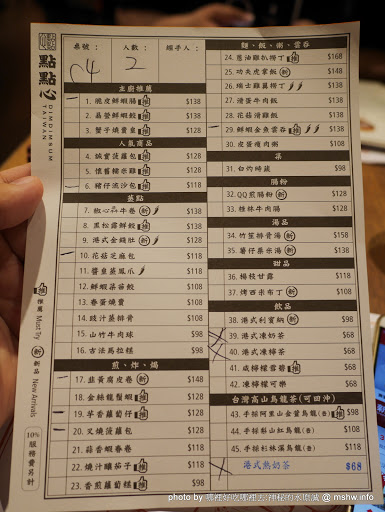 點點心
DIMDIMSUM
TAIWAN
桌號： 人數： 經手人：
C4 2
主廚推薦
1. 脆皮鮮蝦腸 推 $138
2. 晶瑩鮮蝦餃 推 $138
3. 蟹子燒賣皇 推 $138
人氣商品
4. 鎮寶菠蘿包 推 $128
5. 懷舊糯米雞 推 $128
6. 豬仔流沙包 推 $118
蒸點
7. 椒心品牛卷 新 $138
8. 黑松露鮮餃 推 $138
9. 港式金錢肚 新 $138
10. 花菇芝麻包 $118
11. 醬皇蒸鳳爪 $118
12. 鮮蝦菜苗餃 $108
13. 春蛋燒賣 $108
14. 豉汁蒸排骨 $108
15. 山竹牛肉球 $98
16. 古法馬拉糕 $98
煎、炸、焗
17. 韭黃腐皮卷 新 $148
18. 金絲龍鬚蝦 $128
19. 芋香蘿蔔仔 推 $128
20. 叉燒菠蘿包 $128
21. 蒜香蝦春卷 $118
22. 燒汁釀茄子 推 $118
23. 香煎蘿蔔糕 $98
麵、飯、粥、雲吞
24. 蔥油雞扒撈丁 $168
25. 功夫虎掌飯 新 $148
26. 瑞士雞翼撈丁 $148
27. 滑蛋牛肉飯 $148
28. 花菇滑雞飯 $148
29. 鮮蝦金魚雲吞 推 $138
30. 皮蛋瘦肉粥 $108
菜
31. 白灼時蔬 $98
腸粉
32. QQ煎腸粉 新 $128
33. 桂林牛肉腸 $128
湯品
34. 竹笙排骨湯 新 $158
35. 薯仔粟米湯 新 $138
甜品
36. 楊枝甘露 $118
37. 烤西米布丁 新 $98
飲品
38. 港式利賓納 新 $98
39. 港式凍奶茶 $68
40. 港式凍檸茶 $68
41. 咸檸檬雪碧 推 $68
42. 凍檸檬可樂 $68
台灣高山烏龍茶(可回沖)
43. 手採阿里山金萱烏龍(壺) 推 $98
44. 手採梨山紅烏龍(壺) $108
45. 手採杉林溪烏龍(壺) $118
港式熱奶茶 $68
推 推薦 Must Try
新 新品 New Arrivals
10% 服務費另計
@ mshw.info